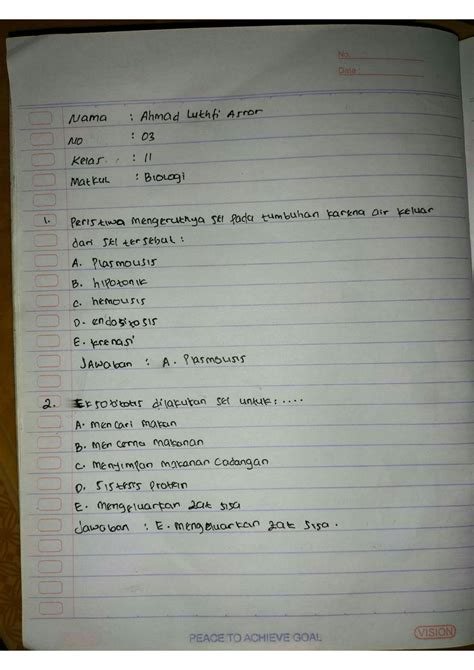 No.
Date :
Nama : Ahmad Luthfi Asror
NO : 03
Kelas : 11
Matkul : Biologi
1. Peristiwa mengerutnya sel pada tumbuhan karena air keluar
dari sel tersebut :
A. Plasmolisis
B. hipotonik
C. hemolisis
D. endositosis
E. krenasi
Jawaban : A. Plasmolisis
2. Eksositosis dilakukan sel untuk : ....
A. mencari makan
B. mencerna makanan
C. menyimpan makanan cadangan
D. Sistesis protein
E. mengeluarkan zat sisa
Jawaban : E. mengeluarkan zat sisa.
PEACE TO ACHIEVE GOAL
VISION